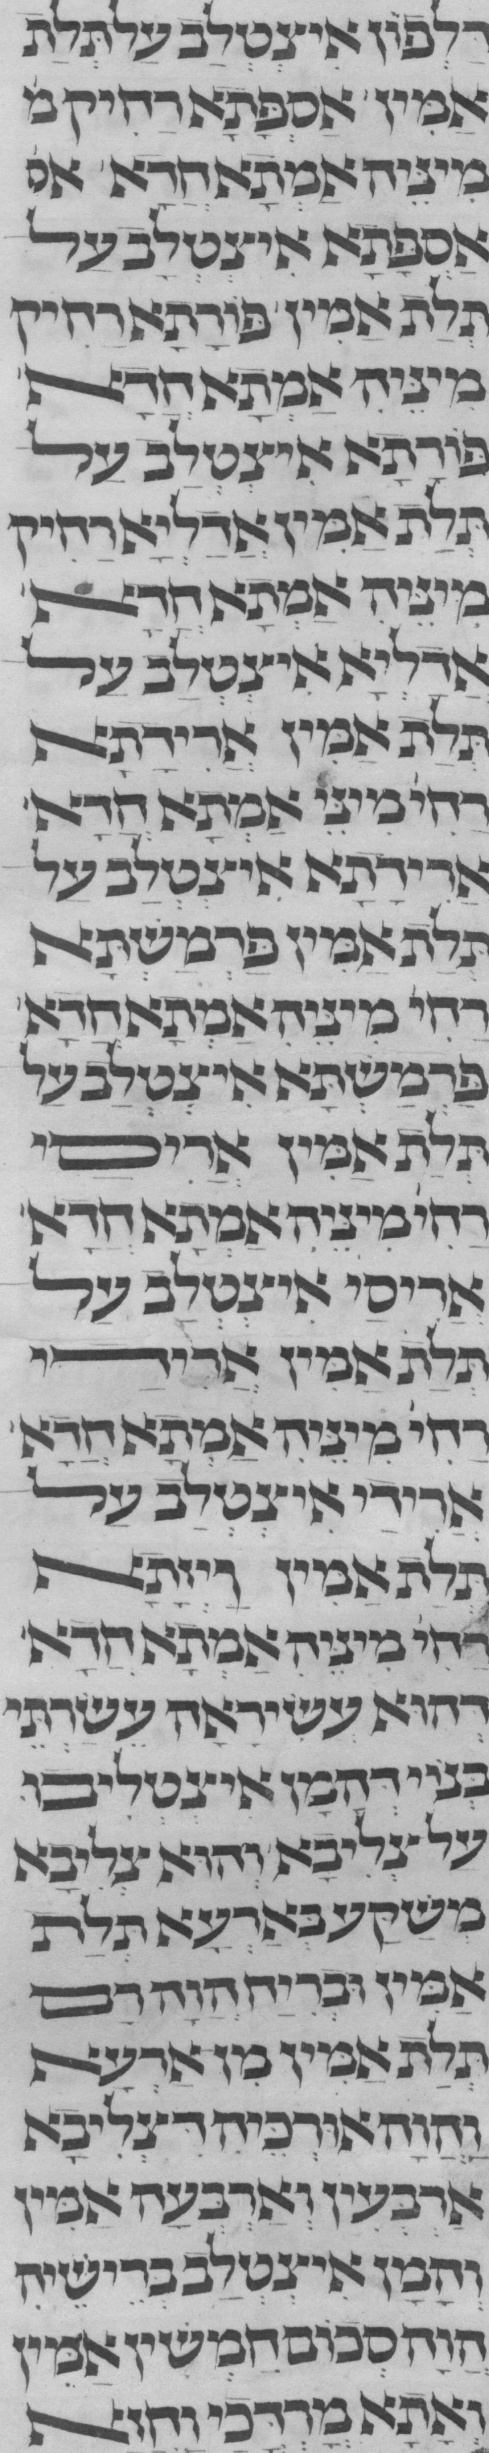 דַלְפוֹן אִיצְטְלַב עַל תְּלַת
אַמִין׳ אַסְפָּתָא רַחִיק מ
מִינֵיהּ אַמְתָא חֲדָא׳ אס
אַסְפָּתָא אִיצְטְלָב עַל
תְּלַת אַמִין׳ פּוֹרָתָא רַחִיק
מִינֵיהּ אַמְתָא חֲדָא׳
פּוֹרָתָא אִיצְטְלַב עַל
תְּלַת אַמִין אֲדַלְיָא רַחִיק
מִינֵיהּ אַמְתָא חֲדָא׳
אֲדַלְיָא אִיצְטְלַב עַל
תְּלַת אַמִין אֲרִידָתָא
רַחִי׳ מִינֵי׳ אַמְתָא חֲדָא׳
אֲרִידָתָא אִיצְטְלַב עַל
תְּלַת אַמִין פַּרְמַשְׁתָּא
רַחִי׳ מִינֵיהּ אַמְתָא חֲדָא׳
פַּרְמַשְׁתָּא אִיצְטְלַב עַל
תְּלַת אַמִין אֲרִיסַי
רַחִי׳ מִינֵיהּ אַמְתָא חֲדָא׳
אֲרִיסַי אִיצְטְלַב עַל
תְּלַת אַמִין אֲרִידַי
רַחִי׳ מִינֵיהּ אַמְתָא חֲדָא׳
אֲרִידַי אִיצְטְלַב עַל
תְּלַת אַמִין וַיְזָתָא
רַחִי׳ מִינֵיהּ אַמְתָא חֲדָא׳
דְהוּא עֲשִׂירָאָה עַשְׂרְתֵּי
בְּנוֹי דְהָמָן אִיצְטְלִיבוּ
עַל צְלִיבָא׳ וְהוּא צְלִיבָא
מְשַׁקַע בְּאַרְעָא תְּלַת
אַמִין וּבְרִיחַ הֲוָה רָם
תְּלַת אַמִין מִן אַרְעָא
וַהֲוָה אוּרְכֵּיהּ דִצְלִיבָא
אַרְבְּעִין וְאַרְבְּעָה אַמִין
וְהָמָן אִיצְטְלַב בְּרֵישֵׁיהּ
הֲוָה סְכוֹם חַמְשִׁין אַמִין
וְאָתָא מָרְדְכַי וַחֲזָא